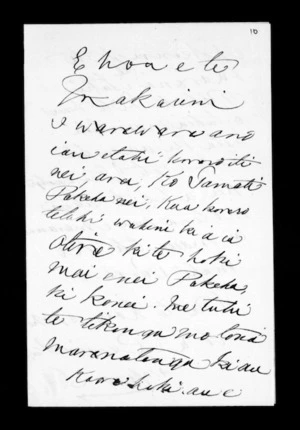 10
E hoa e te
Makarini
I warawara ano
i au etahi korero iti
nei, ara, Ko Tamati
Pakeha nei, Kua korero
tetehi wahine ki a ia
Otira ki te hoki
mai enei Pakeha
ki konei. me tuhi
te tikanga mo tona
maranatanga ki au
Kaore hoki au e